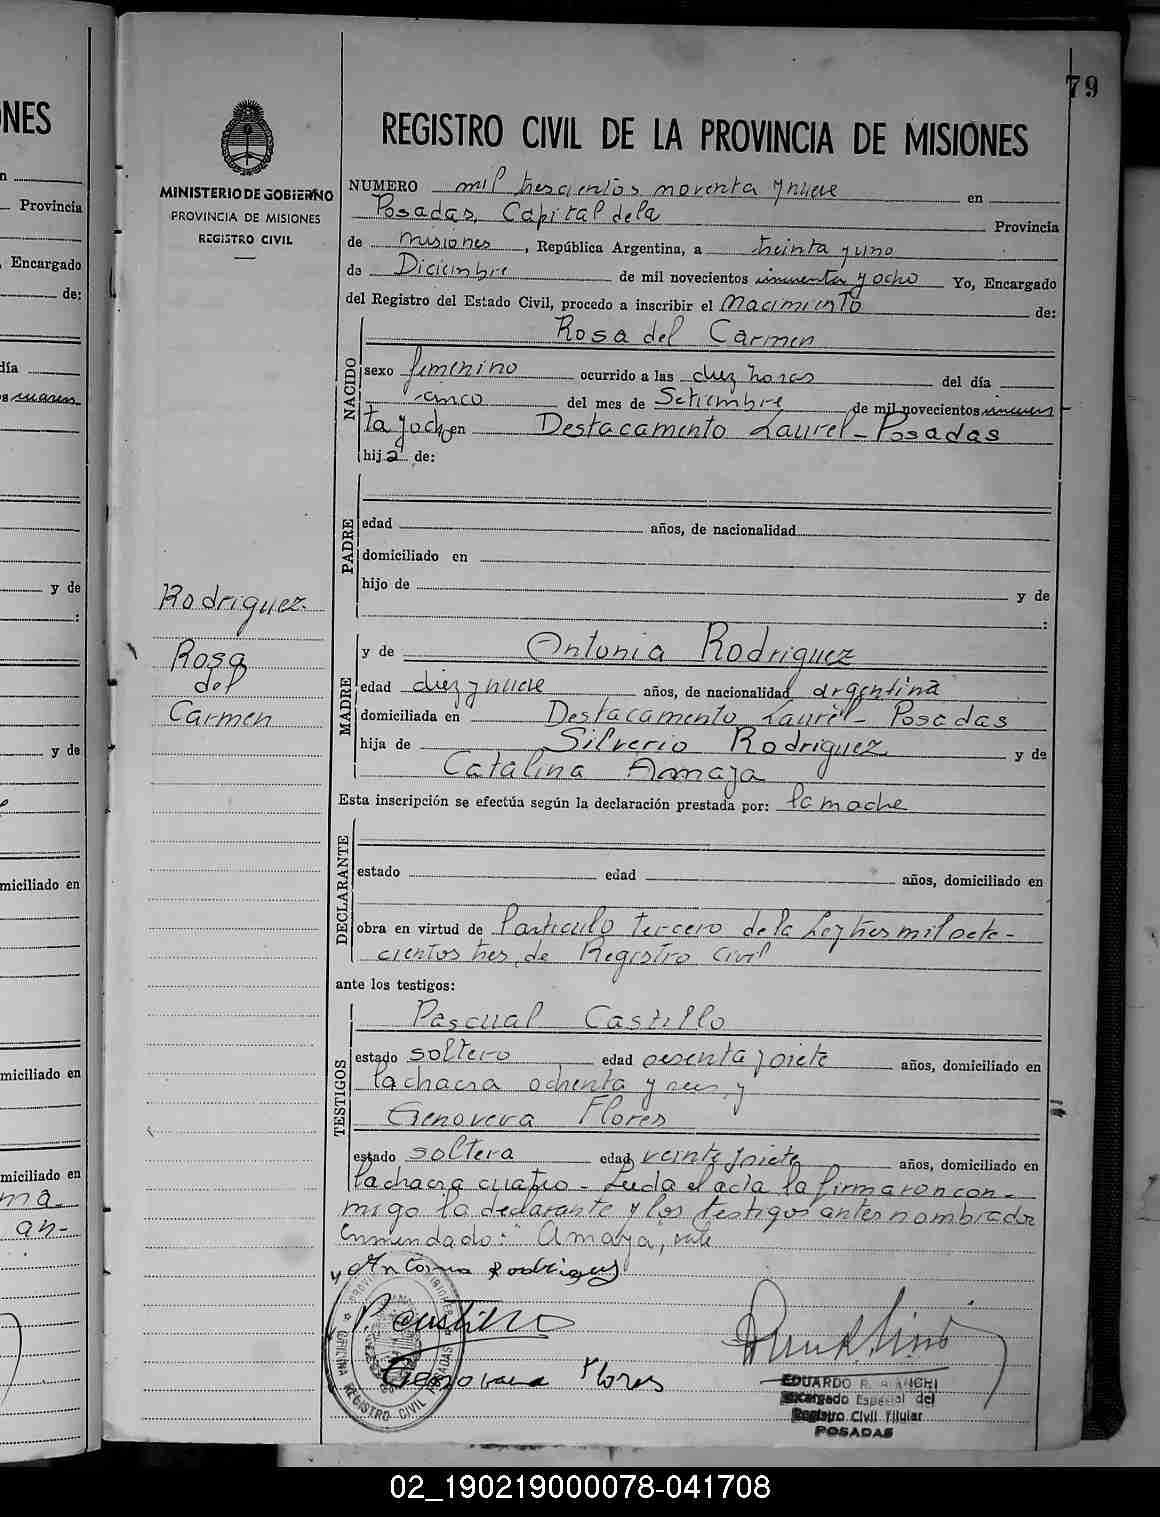 79
NES
Provincia
Encargado
de:
día
y de
:
y de
miciliado en
miciliado en
miciliado en
ma.
an-
MINISTERIO DE GOBIERNO
PROVINCIA DE MISIONES
REGISTRO CIVIL
Rodriguez
Rosa
del
Carmen
REGISTRO CIVIL DE LA PROVINCIA DE MISIONES
NUMERO mil trescientos noventa y nueve en
Posadas, Capital de la Provincia
de Misiones, República Argentina, a treinta y uno
de Diciembre de mil novecientos cincuenta y ocho Yo, Encargado
del Registro del Estado Civil, procedo a inscribir el Nacimiento de:
NACIDO
Rosa del Carmen
sexo femenino ocurrido a las diez horas del día
cinco del mes de Setiembre de mil novecientos cincuen
ta y ocho en Destacamento Laurel - Posadas
hija de:
PADRE
edad años, de nacionalidad
domiciliado en
hijo de y de
:
MADRE
y de Antonia Rodriguez
edad diez y nueve años, de nacionalidad argentina
domiciliada en Destacamento Laurel - Posadas
hija de Silverio Rodriguez y de
Catalina Amaya
Esta inscripción se efectúa según la declaración prestada por: la madre
DECLARANTE
estado edad años, domiciliado en
obra en virtud de l'articulo tercero de la Ley tres mil oche-
cientos tres, de Registro Civil
ante los testigos:
TESTIGOS
Pascual Castillo
estado soltero edad sesenta y siete años, domiciliado en
la chacra ochenta y seis y
Genoveva Flores
estado soltera edad veinte y siete años, domiciliado en
la chacra cuatro - Leida el acta la firmaron con-
migo la declarante y los testigos antes nombrados
Enmendado: Amaya, vale
y Antonia Rodrigues
P Castillo
Genoveva Flores
PROVINCIA MISIONES
OFICINA REGISTRO CIVIL POSADAS
EDUARDO R. BIANCHI
Encargado Especial del
Registro Civil Titular
POSADAS
02_190219000078-041708